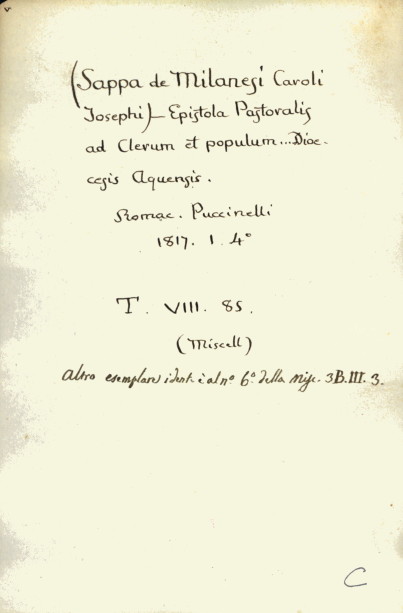 (Sappa de Milanesi Caroli
Josephi) – Epistola Pastoralis
ad Clerum et populum... Dioe-
cesis Aquensis.
Romae. Puccinelli
1817. 1. 4°
T. VIII. 85.
(Miscell)
altro esemplare ident. è al n° 6° della Misc. 3B.III.3.
C